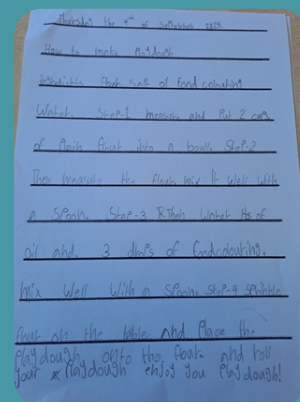 Thursday the 4th of September 2025
How to make playdough
ingredients flour salt oil food colouring
Water. Step-1 measure and Put 2 cups
of plain flour into a bowl. Step-2
Then measure the flour mix it well with
a Spoon. Step-3 Then water of
oil and 3 drops of foodcolouring.
mix well with a Spoon. Step-4 Sprinkle
flour on the table and Place the
Playdough onto the flour and roll
your Playdough enjoy you Playdough!